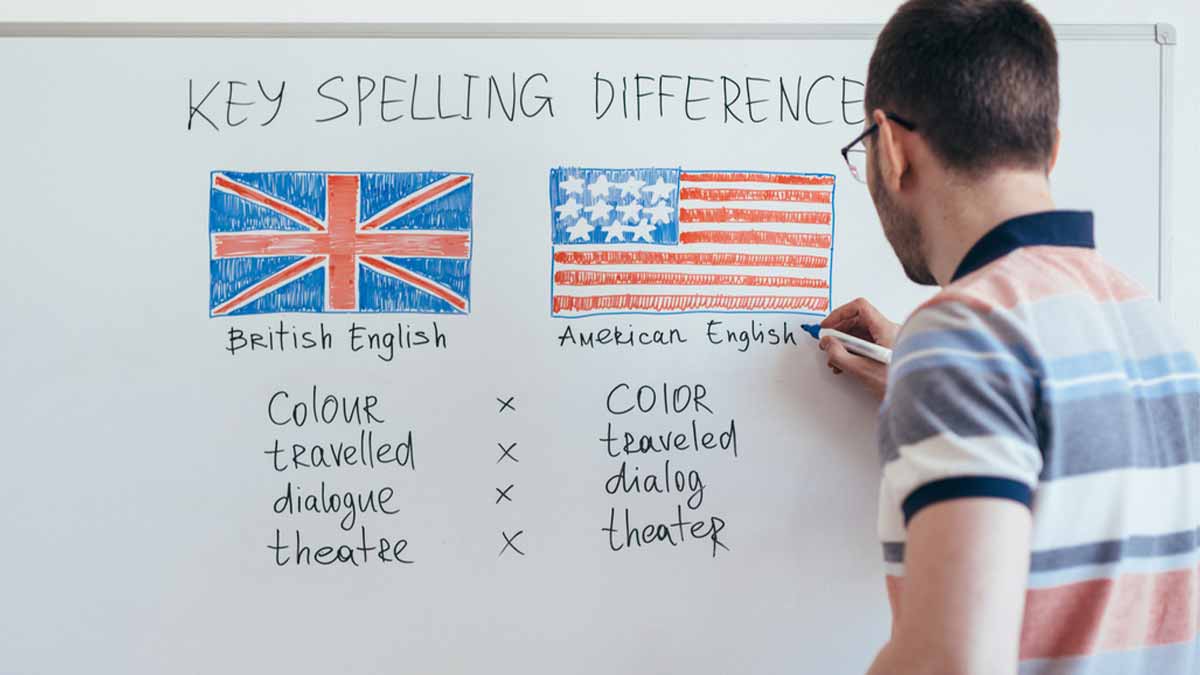 KEY SPELLING DIFFERENCE
British English American English
Colour × COlOR
travelled × traveled
dialogue × dialog
theatre × theater